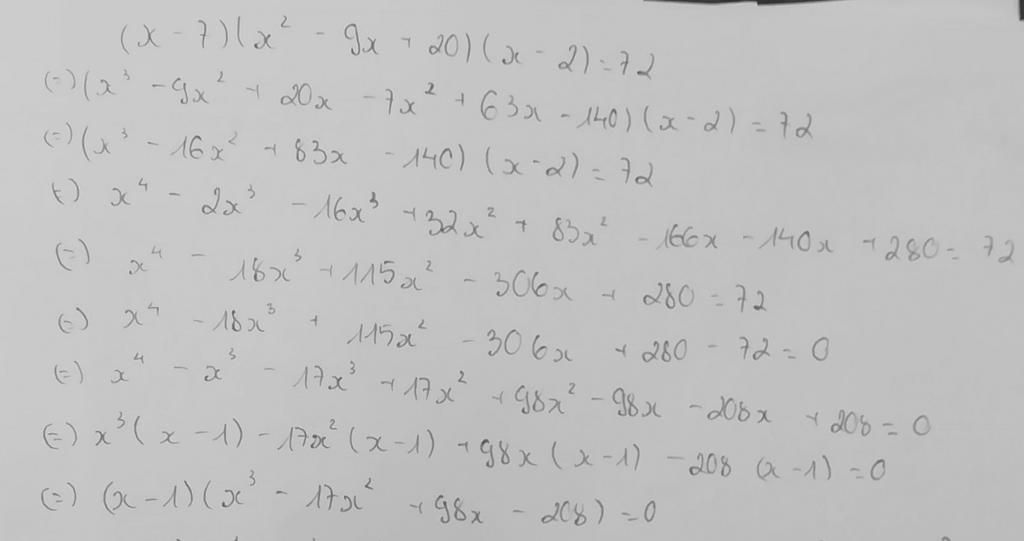 (x - 7)(x² - 9x + 20)(x - 2) = 72
(=) (x³ - 9x² + 20x - 7x² + 63x - 140)(x - 2) = 72
(=) (x³ - 16x² + 83x - 140) (x - 2) = 72
(=) x⁴ - 2x³ - 16x³ + 32x² + 83x² - 166x - 140x + 280 = 72
(=) x⁴ - 18x³ + 115x² - 306x + 280 = 72
(=) x⁴ - 18x³ + 115x² - 306x + 280 - 72 = 0
(=) x⁴ - x³ - 17x³ + 17x² + 98x² - 98x - 208x + 208 = 0
(=) x³(x - 1) - 17x²(x - 1) + 98x(x - 1) - 208(x - 1) = 0
(=) (x - 1)(x³ - 17x² + 98x - 208) = 0